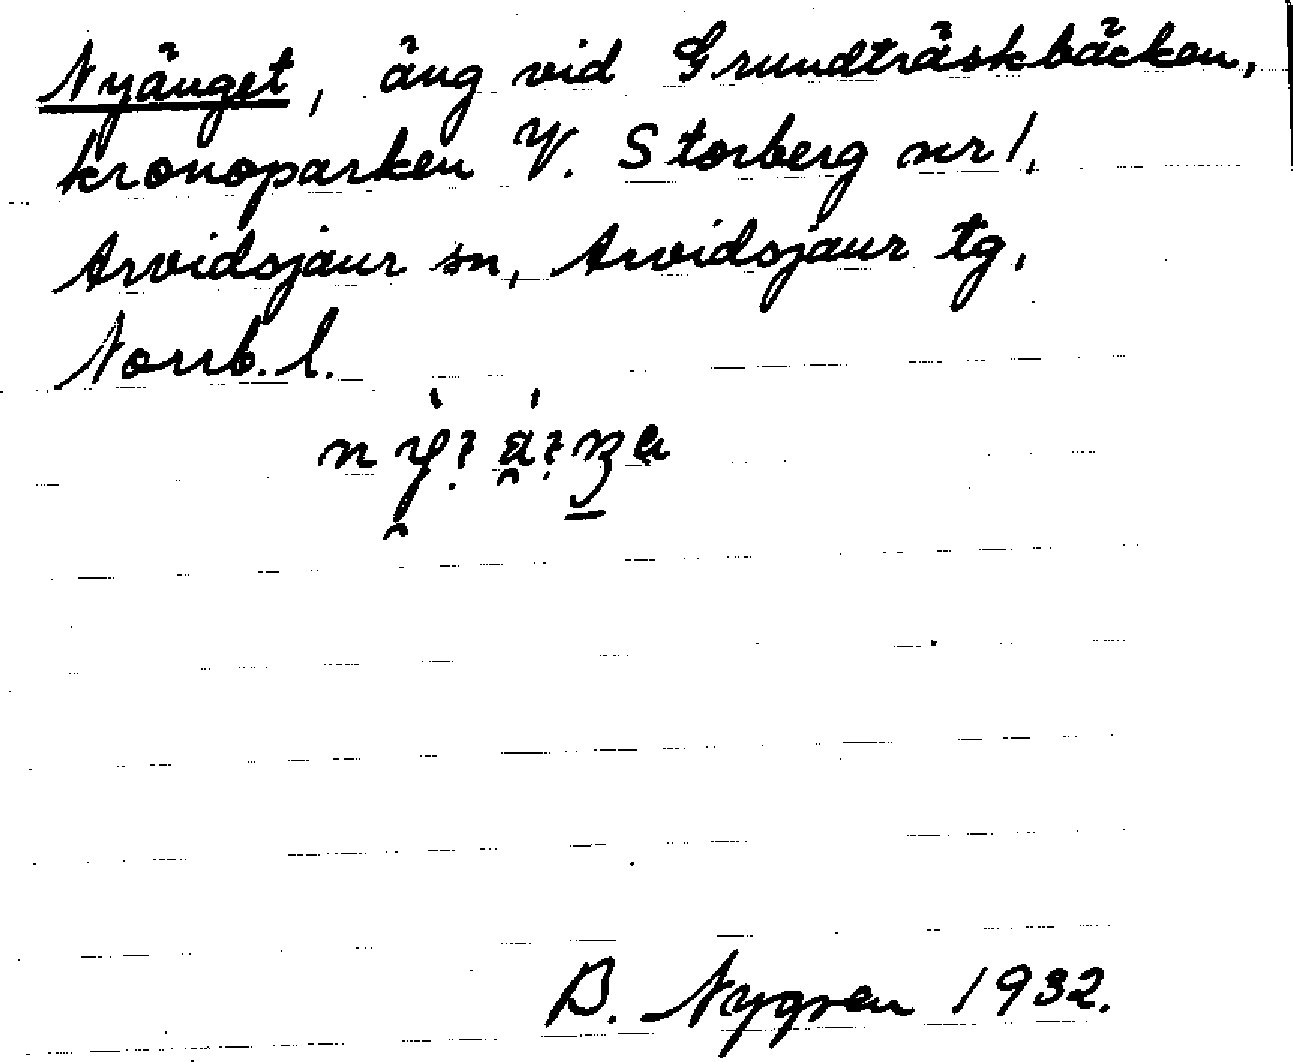 Nyänget, äng vid Grundträskbäcken,
kronoparken V. Storberg nr 1,
Arvidsjaur sn, Arvidsjaur tg,
Norrb. l.
B. Nygren 1932.